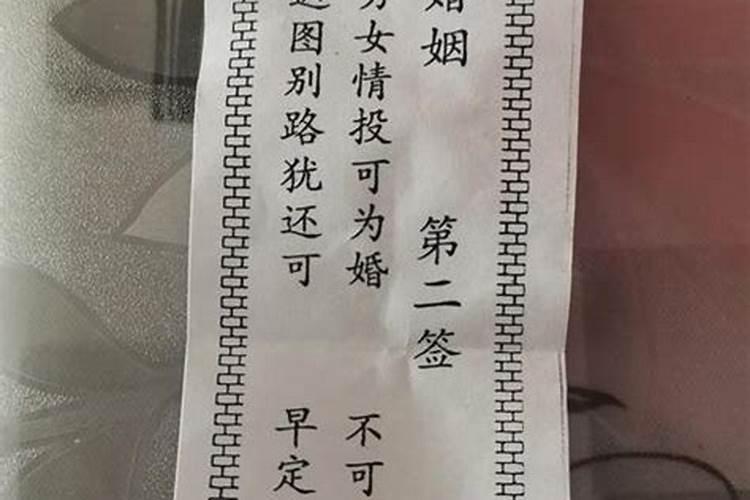 婚姻 第二签
男女情投可为婚 不可
图别路犹还可 早定